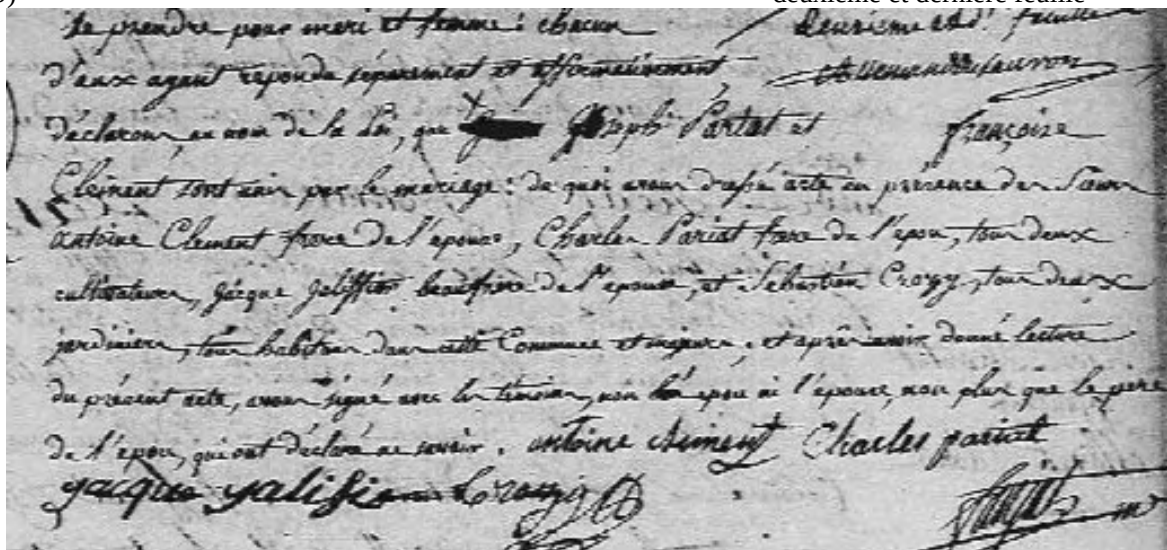 deuxième et dernière feuille
se prendre pour mari et femme : chacun deuxieme et d. feuille
d'eux ayant repondu séparement et affirmativement,
déclarons, au nom de la loi, que Joseph Pariat et françoise
Clément sont unis par le mariage : de quoi avons dressé acte en présence des Sieurs
antoine Clement frere de l'epouse, Charles Pariat frere de l'epou, tous deux
cultivateurs, Jacque Jaliffier beaufrère de l'epouse, et Sebastien Crozy, tous deux
jardiniers, tous habitans dans cette Commune et majeurs, et après avoir donné lecture
du présent acte, avons signé avec les temoins, non epou ni l'epouse, non plus que le père
de l'epou, qui ont déclaré ne savoir. antoine clement Charles pariat
jacque jalifier Crozy